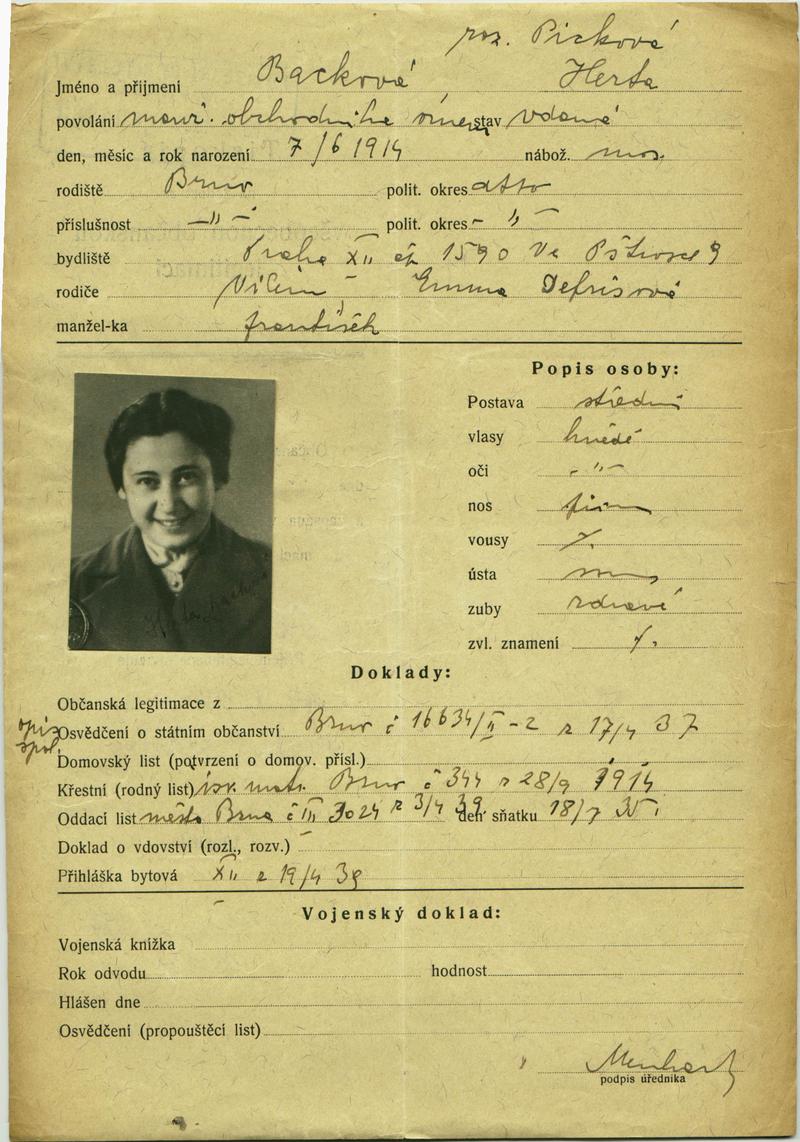 roz. Picková
Jméno a příjmení Backová Herta
povolání manž. obchodního stav vdaná
den, měsíc a rok narození 7/6 1914 nábož. mos.
rodiště Brno polit. okres dtto
příslušnost —„— polit. okres —„—
bydliště Praha XII čp 1590 Ve
rodiče Vilém Emma
manžel-ka František
Popis osoby:
Postava střední
vlasy hnědé
oči —„—
nos
vousy
ústa
zuby zdravé
zvl. znamení
Herta Backová
Doklady:
Občanská legitimace z
opis
Osvědčení o státním občanství Brno č 16634/II-2 z 17/4 37
Domovský list (potvrzení o domov. přísl.)
Křestní (rodný list) isr. matr. Brno č 344 z 28/9 1914
Oddací list město Brna č III 3024 z 3/4 39 den sňatku 18/7 35
Doklad o vdovství (rozl., rozv.) —
Přihláška bytová XII z 19/4 39
Vojenský doklad:
Vojenská knížka
Rok odvodu hodnost
Hlášen dne
Osvědčení (propouštěcí list)
podpis úředníka